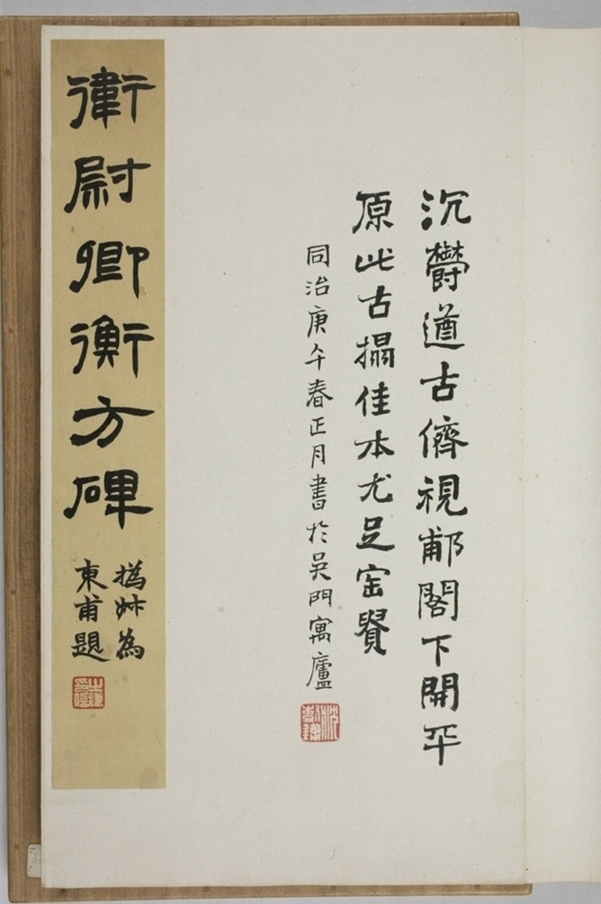 沉欝遒古儕視郙閣下開平
原此古搨佳本尤足寶賢
同治庚午春正月書於吳門寓廬
衛尉卿衡方碑
撝叔為
東甫題